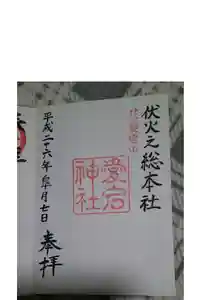 伏火之総本社
愛宕神社
平成二十六年皐月七日
奉拝